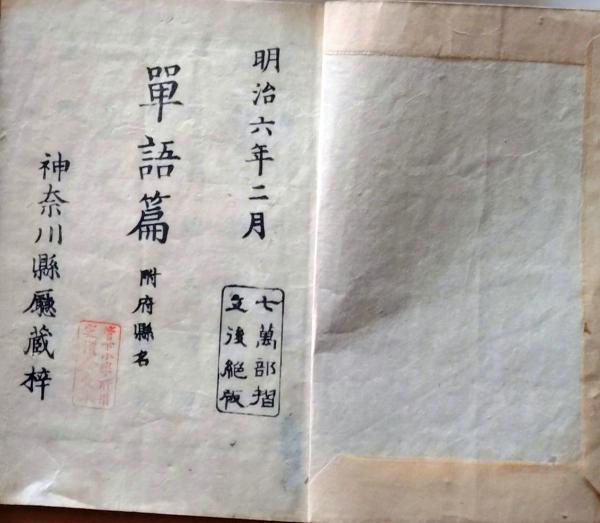 明治六年二月
七萬部摺
立後絶版
單語篇
附府縣名
神奈川縣廳蔵梓